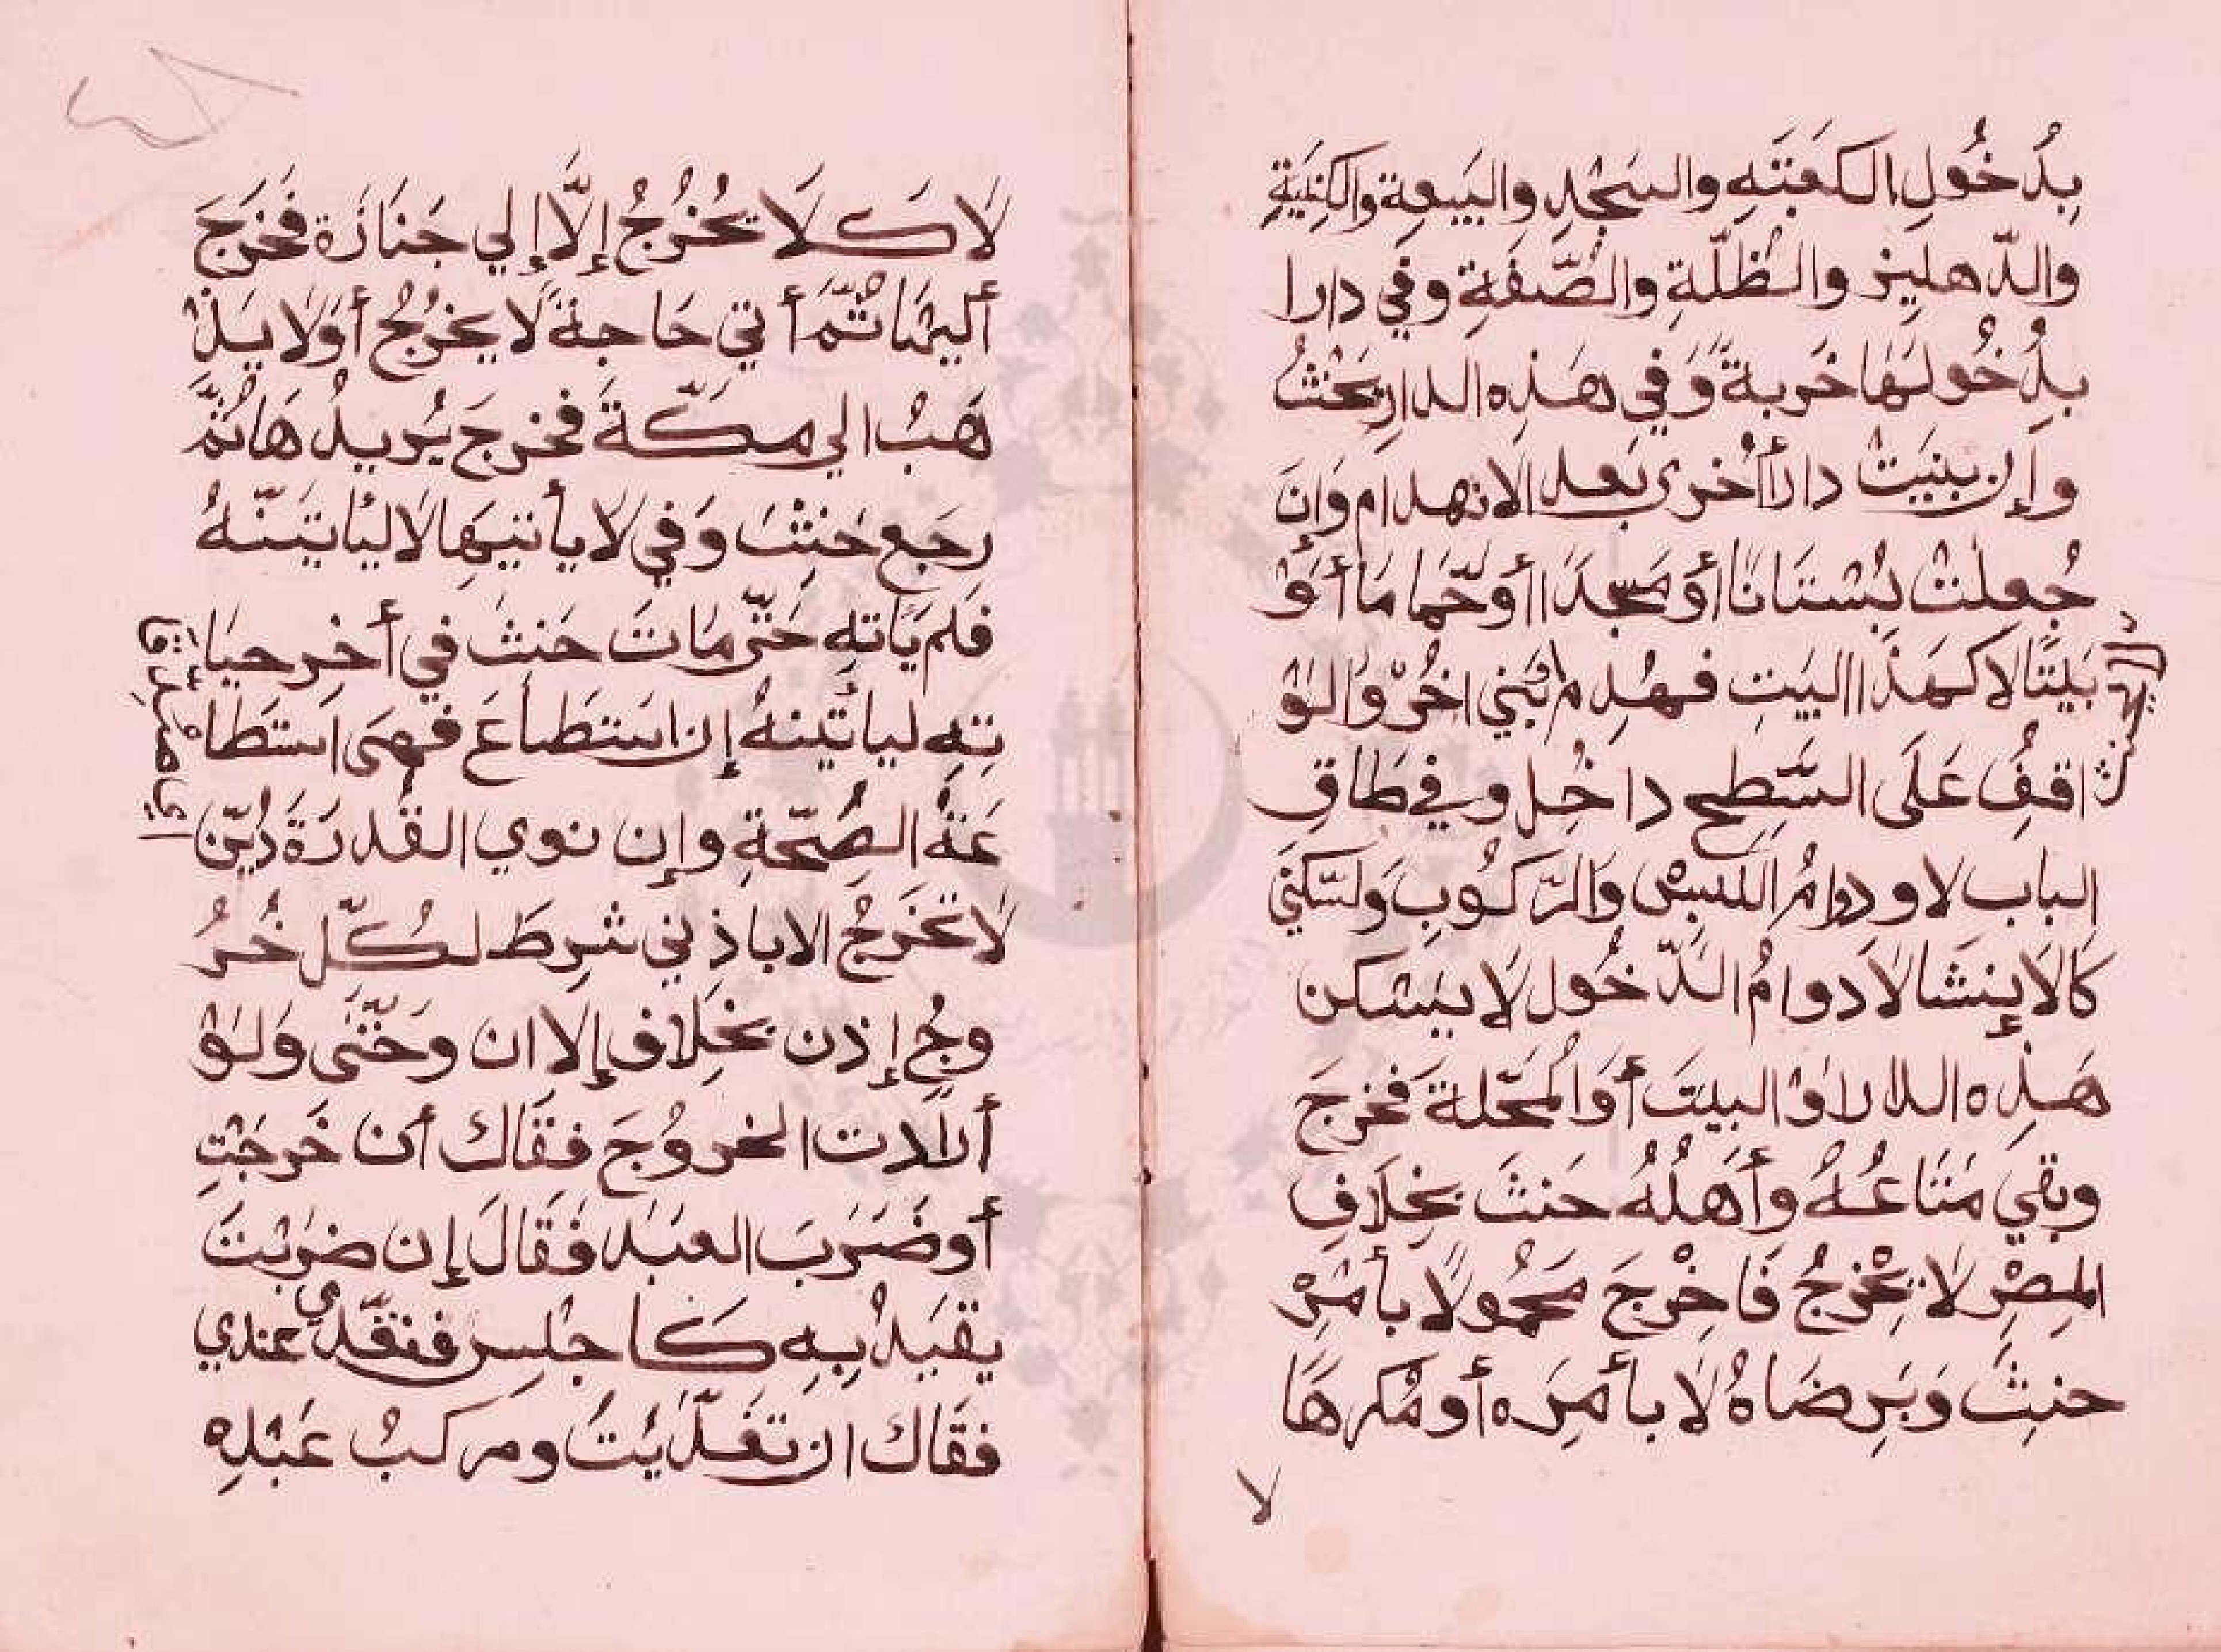 بِدُخُولِ الكَعْبَتِهِ والسَجْدِ والبَيعِةِ والكِنِيَةِ
والدّهليز والظُلّةِ والصُّفَةِ وفي دارا
بِدُخُولَهَا خَربةً وَفي هَذِه الدارِ يحْنثُ
وإن بنيَتْ دارًا أُخرى بَعد الانهدام وَإنَ
جُعِلتْ بُسْتَانًا أَو مَسجدًا أو حَّمامًا أَوْ
بَيْتًا لا كهَذا البَيتِ فهُدِم أو بُنِي اخُرْ وَالوْ
اقفُ عَلَى السَّطِح داخُل وفي طَاقِ
الباب لا ودوامُ اللّبسْ وَالرّكُوبِ وَلسّكني
كَالانِشَا لا دوامُ الدّخُول لا يَسْكن
هَذِه الدار اوْ البيتَ أَو المُحّلةَ فخرجَ
وبقي مَتَاعُهُ وأَهْلُهُ حنثَ بخِلَافِ
المِصْرِ لا يخْرُجُ فَاخِرْجَ مَحْمُولًا بأَمْرِهْ
حنِثَ وَبَرِضَاهُ لَا بأَمرَه أو مُكرهَا
لا
لَا كَلَا يخُرُجُ إلّا إلي جَنَازَة فَخرَجَ
أليهَا ثُمّ أتي حَاجةً لا يخرُجُ أَو لا يَذْ
هَبُ الي مكّةَ فخرجَ يُريدُهَا ثُمَّ
رجَع حَنِثَ وَفي لا يأتيهَا لا ليُاتيَنّهُ
فَلم يَاتهِ حَتّي مَاتَ حَنثَ في أَخِر حيَا
تِهِ ليأتَينهُ إن اسَتطَاعَ فهيَ استَطَا
عَةُ الصِّحّةِ وإن نوي القُدرَةَ دُيّن
لا تخَرجُ الا باذِني شرِطَ لكُلّ خُرُ
وجٍ إذن بخِلاف إلا ان وحَتّى وَلوْ
أرادت الخروُجَ فقَاك أن خَرجْتِ
أو ضَرَبَ العبَد فَقَالَ إن ضرَبْتَ
يقَيدُ بِهِ كَا جْلس فنتغّدي عندي
فقَاك ان تغَدّيْتُ ومركبُ عَبْدِه